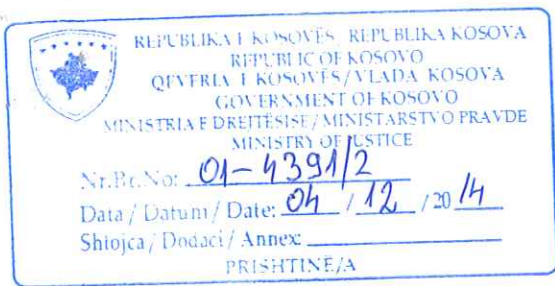 REPUBLIKA E KOSOVËS / REPUBLIKA KOSOVA
REPUBLIC OF KOSOVO
QEVERIA E KOSOVËS / VLADA KOSOVA
GOVERNMENT OF KOSOVO
MINISTRIA E DREJTËSISË / MINISTARSTVO PRAVDE
MINISTRY OF JUSTICE
Nr.Br.No: 01-4391/2
Data / Datum / Date: 04 / 12 / 2014
Shtojca / Dodaci / Annex:
PRISHTINË/A